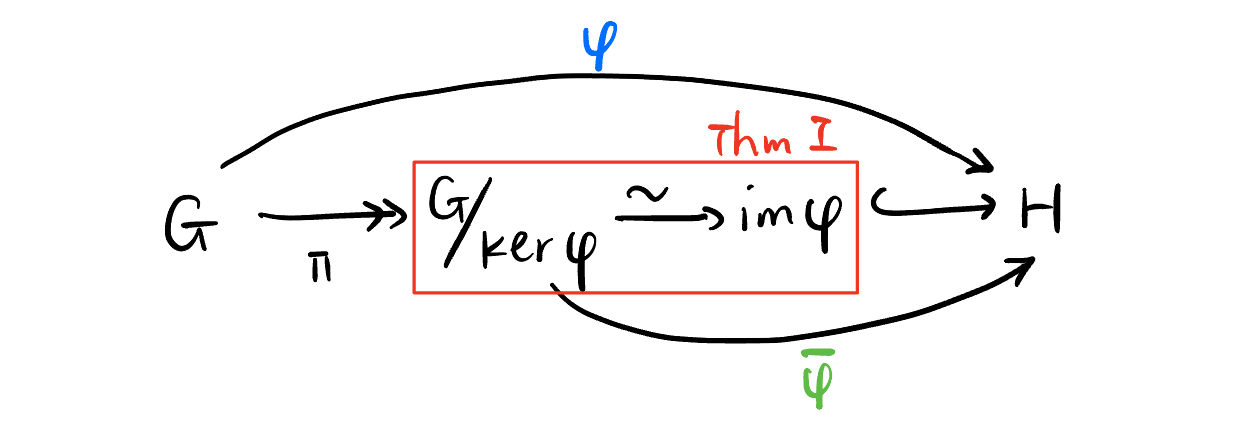 φ
Thm I
G ↠ G/ker φ ⥲ im φ ↪ H
π
φ̄